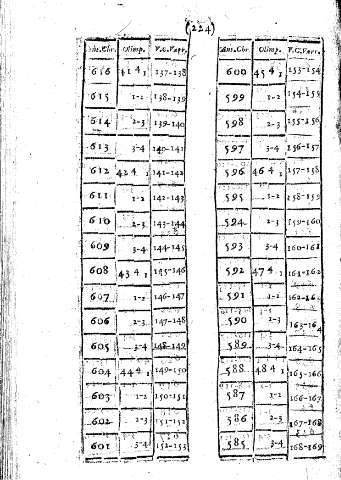 (224)
Ans.Chr. Olimp. V.C.Varr.
616 41 4 1 137-138
615 1-2 138-139
614 2-3 139-140
613 3-4 140-141
612 42 4 1 141-142
611 1-2 142-143
610 2-3 143-144
609 3-4 144-145
608 43 4 1 145-146
607 1-2 146-147
606 2-3 147-148
605 3-4 148-149
604 44 4 1 149-150
603 1-2 150-151
602 2-3 151-152
601 3-4 152-153
Ans.Chr. Olimp. V.C.Varr.
600 45 4 1 153-154
599 1-2 154-155
598 2-3 155-156
597 3-4 156-157
596 46 4 1 157-158
595 1-2 158-159
594 2-3 159-160
593 3-4 160-161
592 47 4 1 161-162
591 1-2 162-163
590 2-3 163-164
589 3-4 164-165
588 48 4 1 165-166
587 1-2 166-167
586 2-3 167-168
585 3-4 168-169